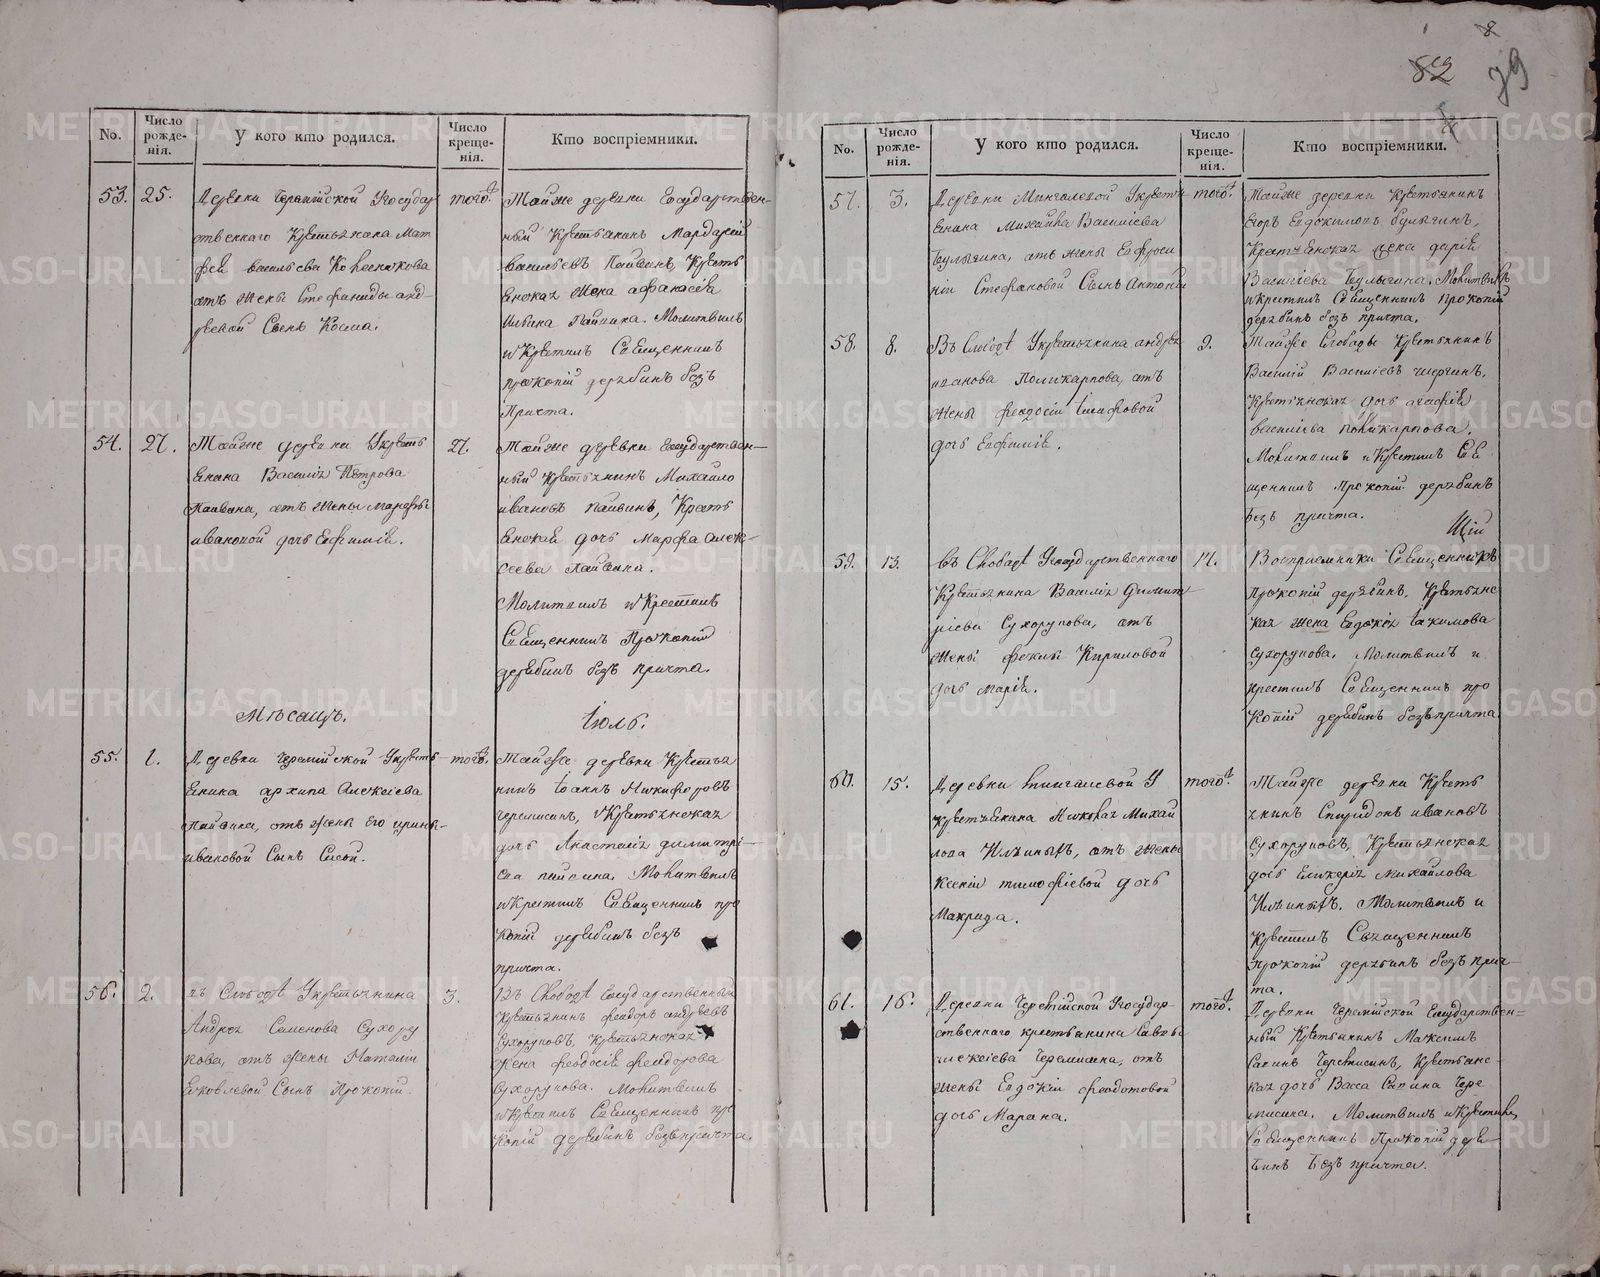 82
79
No.
Число рожде-нія.
У кого кто родился.
Число креще-нія.
Кто воспріемники.
53.
25.
Деревни Черемійской Угосудар
ственнаго Крестьянина Мат
фея васильева
отъ жены Стефаниды анд-
реевой Сынъ Косма.
того.
Тойже деревни Государствен-
ный Крестьянинъ Мардарій
васильевъ Пайвинъ, Кресть
янская Жена афанасія
Ильина Пайвина. Молитвилъ
и Крестилъ Священникъ
прокопій дерябинъ безъ
Причта.
54.
27.
Тойже деревни Укресть
янина Василія Петрова
Паивина, отъ жены марѳы
ивановой дочь Евфимія.
27.
Тойже деревни Государствен-
ный Крестьянинъ Михайло
ивановъ паивинъ, Кресть
янская дочь Марфа Алек-
сеева паивина.
Молитвилъ и Крестилъ
Священникъ Прокопій
дерябинъ безъ причта.
Мѣсяцъ.
Іюль.
55.
1.
Деревни Черемійской Укресть-
янина архипа Алексіева
Пайвина, отъ жены его ирины-
ивановой Сынъ Сысой.
того.
Тойже деревни Крестья
нинъ Іоаннъ Никифоровъ
черемисинъ, и Крестьянская
дочь Анастасія димитрі-
ева пайвина, Молитвилъ
и Крестилъ Священникъ про
копій дерябинъ безъ
причта.
56.
2.
въ Слободѣ Укрестьянина
Андрея Семенова Сухору
кова, отъ жены Наталіи
Яковлевой Сынъ Прокопій.
3.
Въ Слободѣ Государственный
Крестьянинъ феодоръ андреевъ
Сухоруковъ, Крестьянская
жена феодосія феодорова
Сухорукова. Молитвилъ
и Крестилъ Священникъ про
копій дерябинъ безъ причта.
No.
Число рожде-нія.
У кого кто родился.
Число креще-нія.
Кто воспріемники.
57.
3.
Деревни Мингалевой Укресть
янина Михайла Василіева
Булыгина, отъ жены Евфроси
ніи Стефановой Сынъ Антоній
того.
Тойже деревни Крестьянинъ
Егоръ Евдокимовъ булыгинъ,
Крестьянская дарія
Василіева Булыгина. Молитвилъ
и крестилъ Священникъ прокопій
дерябинъ безъ причта.
58.
8.
Въ Слободѣ Укрестьянина андрея
иванова Поликарпова, отъ
жены феодосіи
дочь Евфимія.
9.
Тойже Слободы Крестьянинъ
Василій Василіевъ
Крестьянская дочь агафія
василіева поликарпова.
Молитвилъ и Крестилъ Свя
щенникъ Прокопій дерябинъ
безъ причта.
59.
13.
въ Слободѣ Угосударственнаго
Крестьянина Василія димит-
ріева Сухорукова, отъ
жены феклы Кириловой
дочь марія.
14.
Воспріемники Священникъ
прокопій дерябинъ, Крестьянс
кая жена Евдокія іакимова
сухорукова. Молитвилъ и
крестилъ Священникъ про
копій дерябинъ безъ причта
60.
15.
Деревни мингалевой У
крестьянина Николая Михай
лова Ильиныхъ, отъ жены
Ксеніи тимофіевой дочь
Макрида.
того.
Тойже деревни Кресть
янинъ Спиридонъ ивановъ
Сухоруковъ, Крестьянская
дочь Гликерія Михайлова
Ильиныхъ. Молитвилъ и
Крестилъ Священникъ
Прокопій дерябинъ безъ прич-
та.
61.
16.
Деревни Черемійской Угосудар-
ственнаго крестьянина Саввы
алексіева Черемисина, отъ
жены Евдокіи феодотовой
дочь Марина.
того.
Деревни Черемійской Государствен=
ный Крестьянинъ Максимъ
Савинъ Черемисинъ, Крестьянс-
кая дочь Васса Савина Чере
мисина. Молитвилъ и Крестилъ
Священникъ Прокопій деря-
бинъ безъ причта.
METRIKI.GASO-URAL.RU